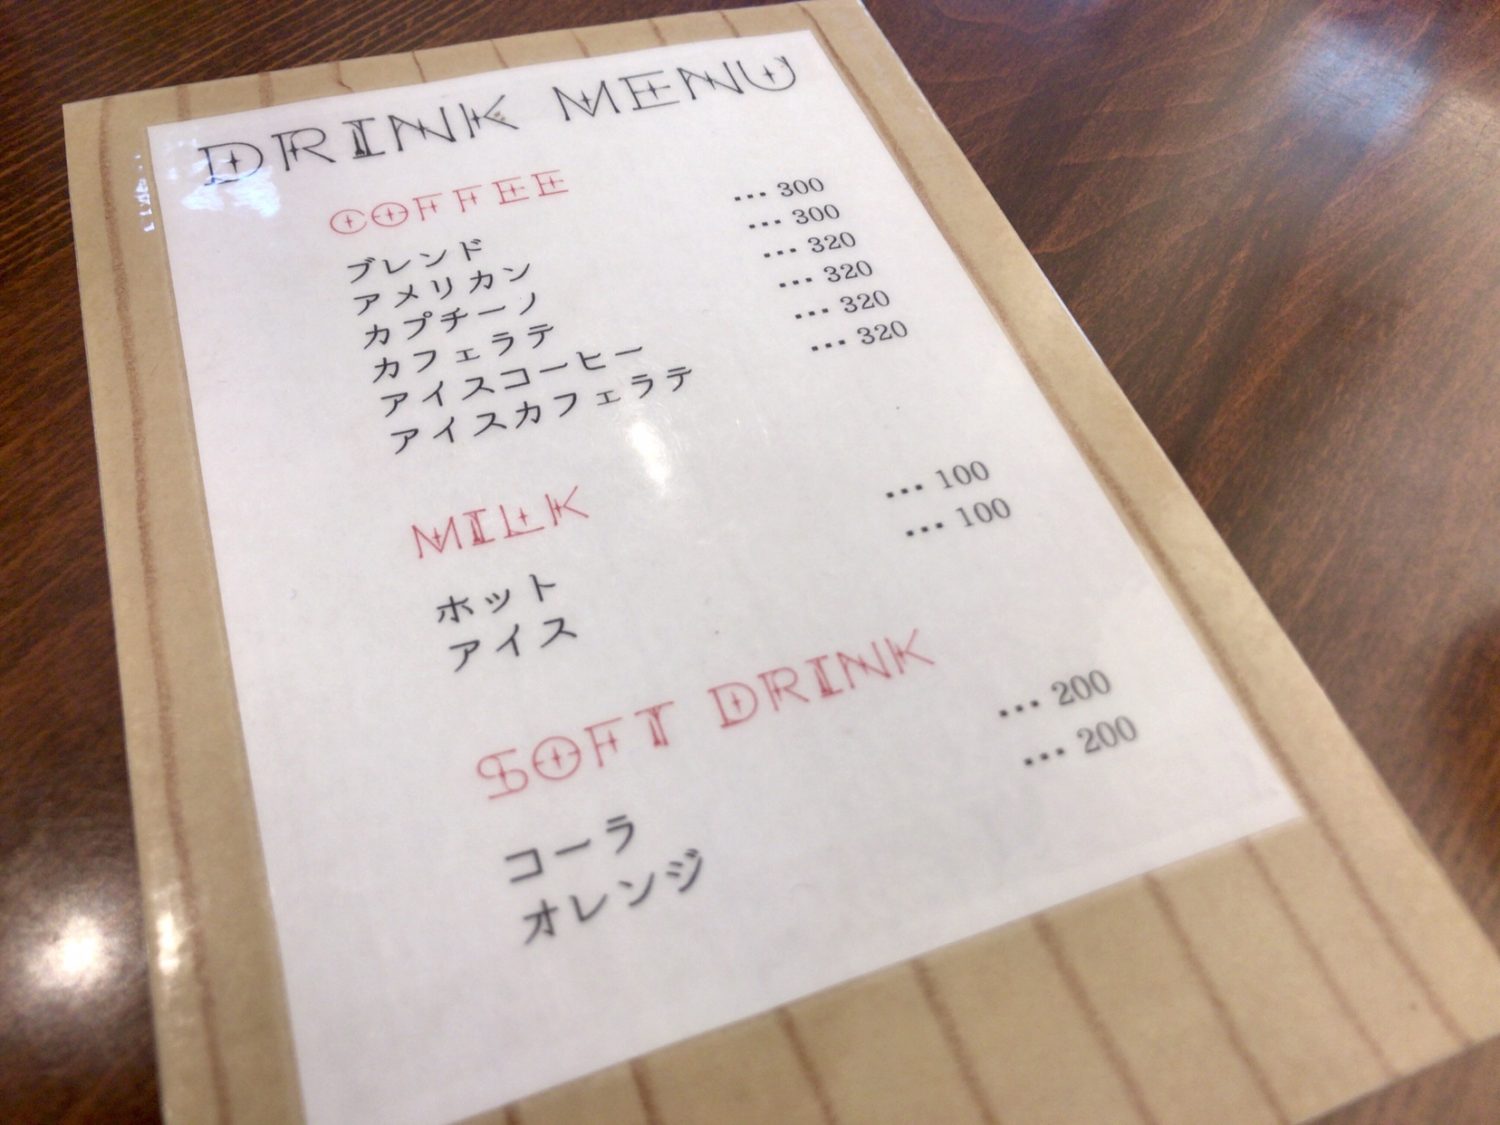 DRINK MENU
COFFEE
ブレンド ... 300
アメリカン ... 300
カプチーノ ... 320
カフェラテ ... 320
アイスコーヒー ... 320
アイスカフェラテ ... 320
MILK
ホット ... 100
アイス ... 100
SOFT DRINK
コーラ ... 200
オレンジ ... 200